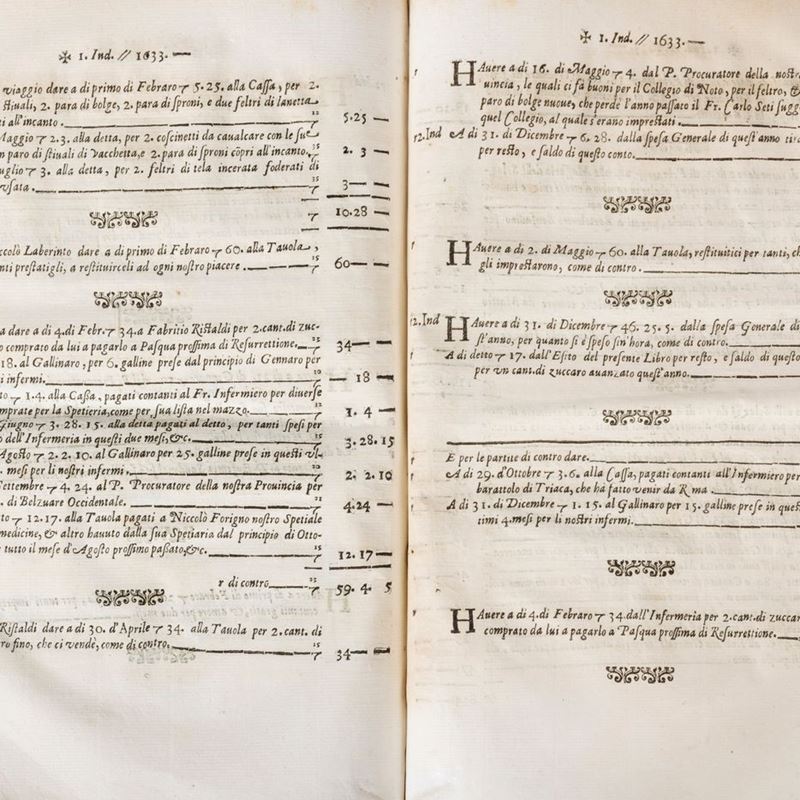 ✠ 1. Ind. // 1633.
viaggio dare a di primo di Febraro 7 5.25. alla Caſſa, per 2.
ſtiuali, 2. para di bolge, 2. para di ſproni, e due feltri di lanetta
ti all'incanto. 5.25 —
Maggio 7 2.3. alla detta, per 2. coſcinetti da caualcare con le ſue
n paro di ſtiuali di Vacchetta, e 2. para di ſproni cõpri all'incanto. 7 2. 3 —
uglio 7 3. alla detta, per 2. feltri di tela incerata foderati di
vſata. 7 3 — —
7 10.28 —
ccolò Laberinto dare a di primo di Febraro 7 60. alla Tauola,
nti preſtatigli, a reſtituirceli ad ogni noſtro piacere. 7 60 — —
a dare a di 4. di Febr. 7 34. a Fabritio Riſtaldi per 2. cant. di zuc-
o comprato da lui a pagarlo a Paſqua proſſima di Reſurrettione. 7 34 — —
18. al Gallinaro, per 6. galline preſe dal principio di Gennaro per
i infermi. 7 — 18 —
to 7 1.4. alla Caſſa, pagati contanti al Fr. Infermiero per diuerſe
mprate per la Spetieria, come per ſua liſta nel mazzo. 7 1. 4 —
Giugno 7 3. 28. 15. alla detta pagati al detto, per tanti ſpeſi per
o dell'Infermeria in queſti due meſi, &c. 7 3. 28. 15
Agoſto 7 2. 2. 10. al Gallinaro per 25. galline preſe in queſti vl-
meſi per li noſtri infermi. 7 2. 2. 10
Settembre 7 4. 24. al P. Procuratore della noſtra Prouincia per
. di Belzuare Occidentale. 7 4.24 —
to 7 12.17. alla Tauola pagati a Niccolò Forigno noſtro Spetiale
medicine, & altro hauuto dalla ſua Spetiaria dal principio di Otto-
tutto il meſe d'Agoſto proſſimo paßato, &c. 7 12. 17 —
r di contro 7 59. 4. 5
Riſtaldi dare a di 30. d'Aprile 7 34. alla Tauola per 2. cant. di
ro fino, che ci vendè, come di contro. 7 34 — —
✠ 1. Ind. // 1633.
HAuere a di 16. di Maggio 7 4. dal P. Procuratore della noſtr
uincia, le quali ci fà buoni per il Collegio di Noto, per il feltro, &
paro di bolge nuoue, che perdè l'anno paſſato il Fr. Carlo Seti ſugg
quel Collegio, al quale s'erano impreſtati.
12. Ind A di 31. di Dicembre 7 6. 28. dalla ſpeſa Generale di queſt'anno tir
per reſto, e ſaldo di queſto conto.
HAuere a di 2. di Maggio 7 60. alla Tauola, reſtituitici per tanti, ch
gli impreſtarono, come di contro.
12. Ind HAuere a di 31. di Dicembre 7 46. 25. 5. dalla ſpeſa Generale di
ſt'anno, per quanto ſi è ſpeſo ſin'hora, come di contro.
A di detto 7 17. dall'Eſito del preſente Libro per reſto, e ſaldo di queſto
per vn cant. di zuccaro auanzato queſt'anno.
E per le partite di contro dare.
A di 29. d'Ottobre 7 3. 6. alla Caſſa, pagati contanti all'Infermiero per
barattolo di Triaca, che ha fatto venir da R ma
A di 31. di Dicembre 7 1. 15. al Gallinaro per 15. galline preſe in queſ
timi 4. meſi per li noſtri infermi.
HAuere a di 4. di Febraro 7 34. dall'Infermeria per 2. cant. di zuccar
comprato da lui a pagarlo a Paſqua proſſima di Reſurrettione.